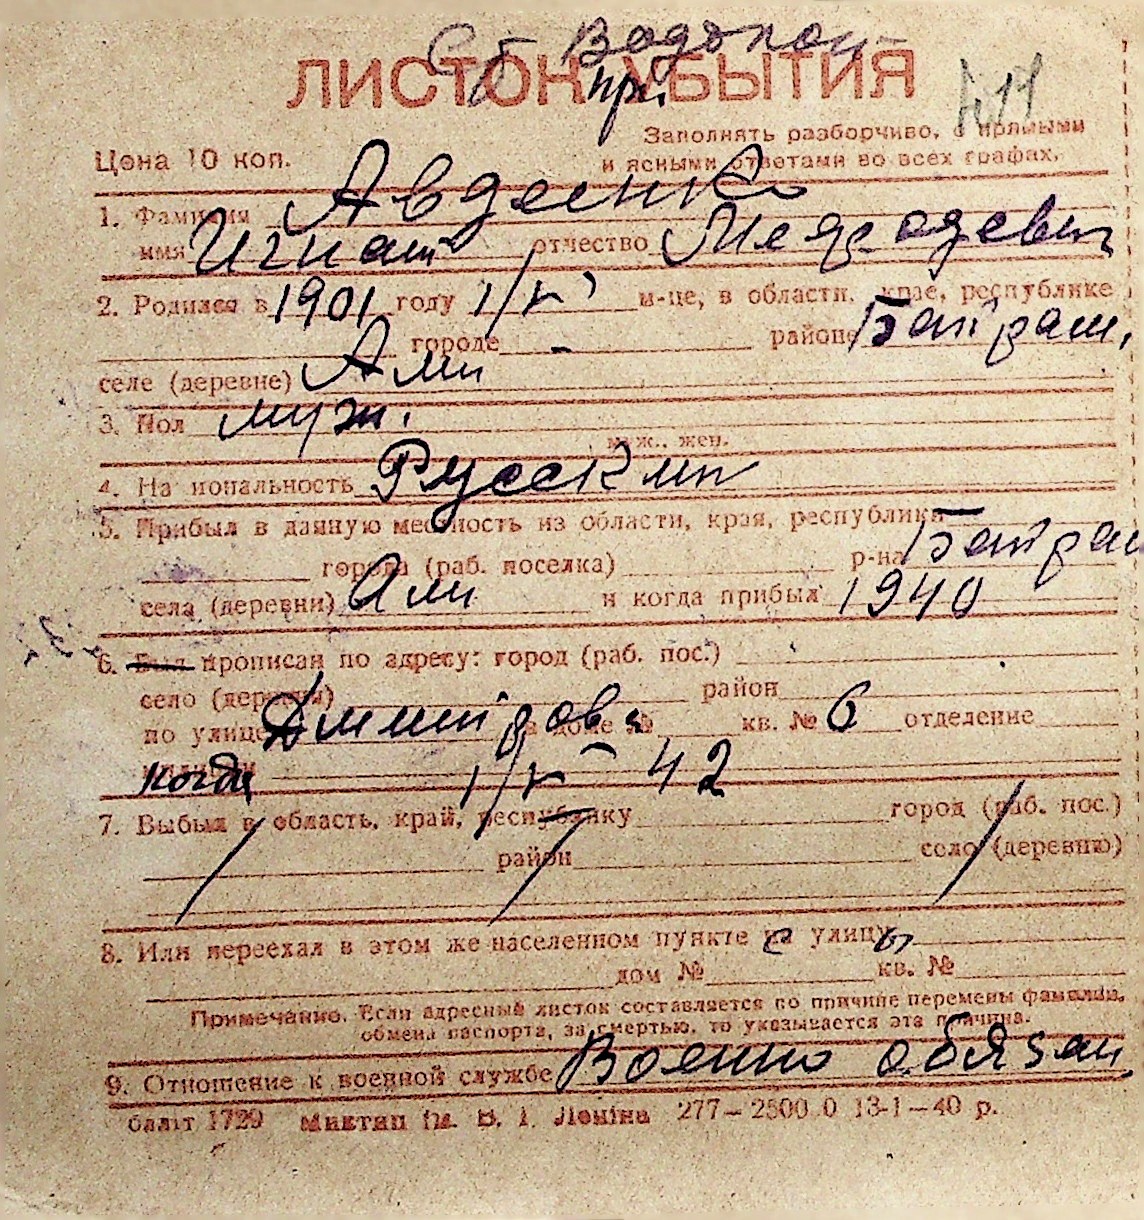 Водопой
пр.
ЛИСТОК УБЫТИЯ
Цена 10 коп.
Заполнять разборчиво, с прямыми
и ясными ответами во всех графах.
1. Фамилия Авдеенко
имя Игнат отчество Мефодевич
2. Родился в 1901 году 1/V м-це, в области, крае, республике
городе - районе Баштрам.
селе (деревне) Ами
3. Пол муж.
муж., жен.
4. Национальность Русский
5. Прибыл в данную местность из области, края, республики —
города (раб. поселка) р-на
села (деревни) Ами и когда прибыл 1940
6. Был прописан по адресу: город (раб. пос.)
село (деревня) район
по улице Дмитровк в доме № кв. № 6 отделение
когда 1/V 42
7. Выбыл в область, край, республику город (раб. пос.)
район село (деревню)
8. Или переехал в этом же населенном пункте на улицу
дом № кв. №
Примечание. Если адресный листок составляется по причине перемены фамилии,
обмена паспорта, за смертью, то указывается эта причина.
9. Отношение к военной службе Военно обязан.
1729 Миктип ім. В. І. Леніна 277—2500 0 13-1—40 р.